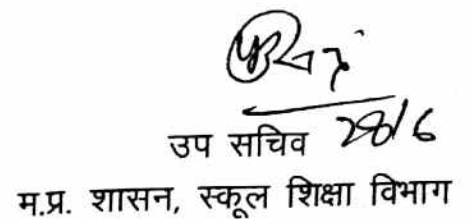 उप सचिव 28/6
म.प्र. शासन, स्कूल शिक्षा विभाग